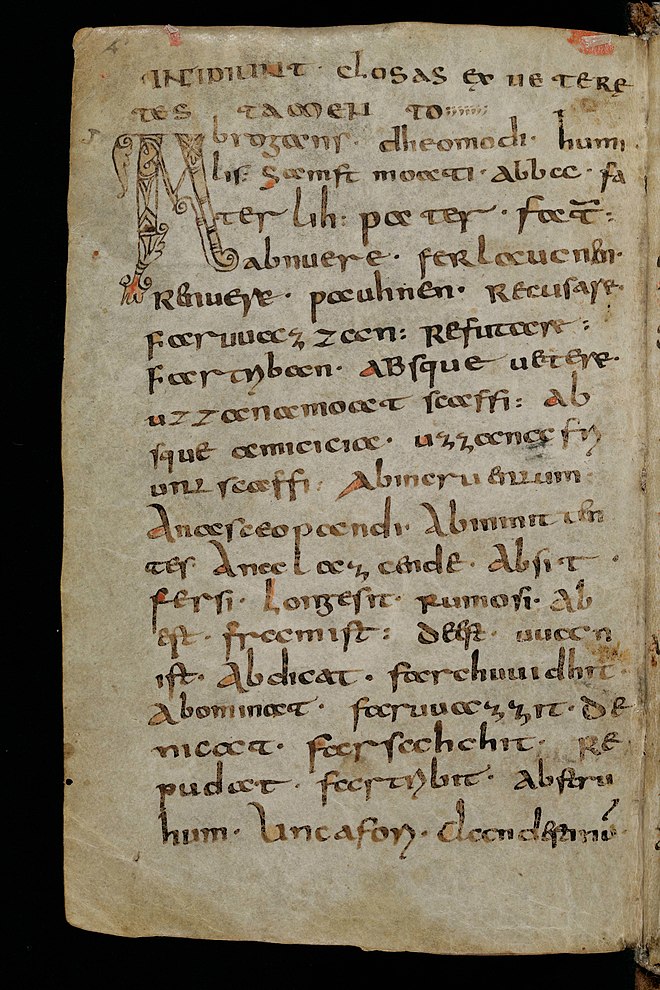 INCIPIUNT CLOSAS EX UETERE
TES TAMEN TO
Abrogans · dheomodi · humi
lis: samft moati · abba · fa
ter lih: pater · fat̄:
abnuere · ferlaucnen·
Renuere · pauhnen · Recusare·
faruuazzan: Refutare:
fartriban · ABsque uetere·
uzzana moat scaffi: ab
sque amicicia · uzzana fri
unt scaffi: abincruentum
Anasceopandi· Abinnit ten
tes Anclazende· Absit ·
fersi · Longe sit · rumosi· Ab
est · fram ist: deest · uuan
ist· Abdicat · farchuuidhit·
Abominat · faruuazzit · de
nicat · farsahchit · Re
pudiat · fartribit · abstru
hum·